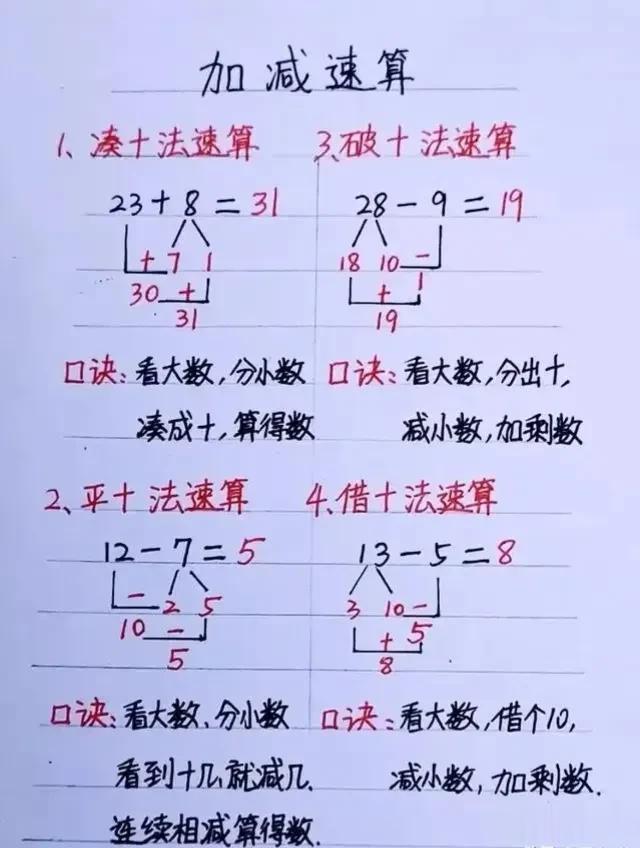 加减速算
1、凑十法速算
23+8=31
+ 7 1
30 +
31
口诀:看大数,分小数
凑成十,算得数
3、破十法速算
28-9=19
18 10 -
1
+
19
口诀:看大数,分出十,
减小数,加剩数
2、平十法速算
12-7=5
- 2 5
10 -
5
口诀:看大数、分小数
看到十几就减几.
连续相减算得数.
4、借十法速算
13-5=8
3 10 -
+ 5
8
口诀:看大数,借个10,
减小数,加剩数.